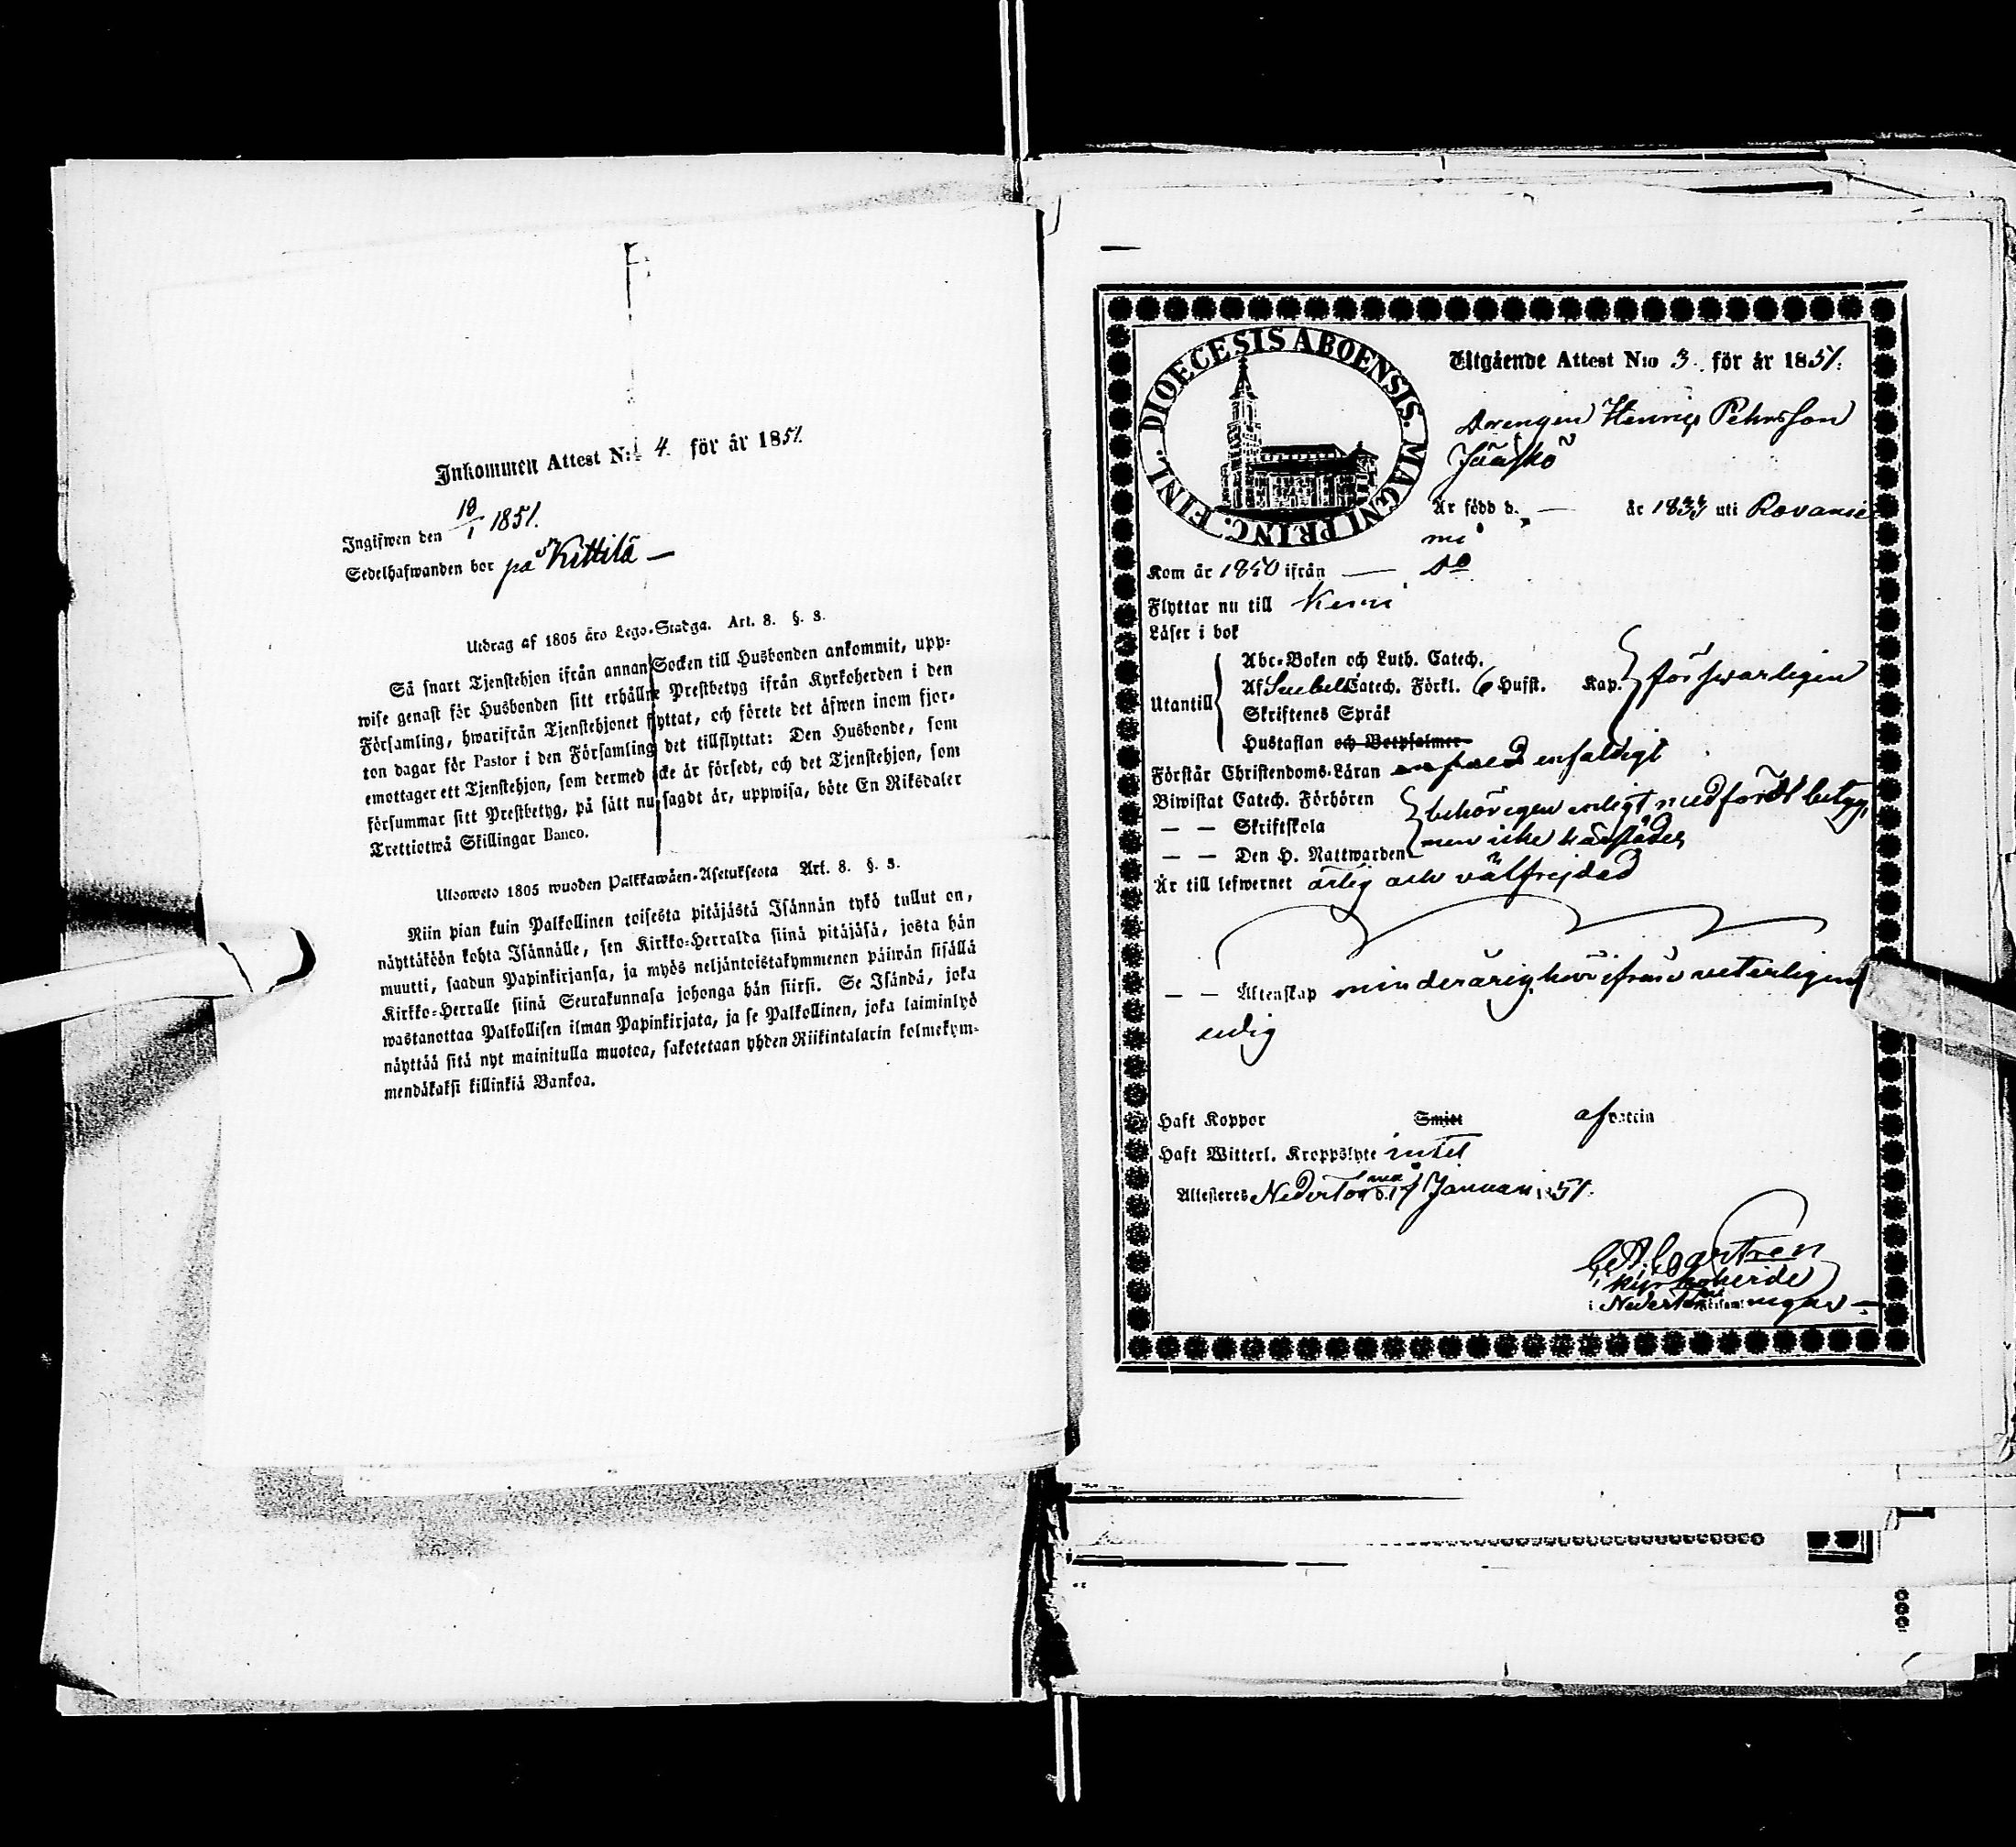 Inkommen Attest N:o 4. för år 1851.
Ingifwen den 19/1 1851.
Sedelhafwanden bor på Kittilä —
Utdrag af 1805 års Lego-Stadga. Art. 8. §. 3.
Så snart Tjenstehjon ifrån annan Socken till Husbonden ankommit, upp-
wise genast för Husbonden sitt erhållne Prestbetyg ifrån Kyrkoherden i den
Församling, hwarifrån Tjenstehjonet flyttat, och förete det äfwen inom fjor-
ton dagar för Pastor i den Församling det tillflyttat: Den Husbonde, som
emottager ett Tjenstehjon, som dermed icke är försedt, och det Tjenstehjon, som
försummar sitt Prestbetyg, på sätt nu sagdt är, uppwisa, böte En Riksdaler
Trettiotwå Skillingar Banco.
Ulosweto 1805 wuoden Palkkawäen-Asetuksesta Art. 8. §. 3.
Niin pian kuin Palkollinen toisesta pitäjästä Isännän tykö tullut on,
näyttäköön kohta Isännälle, sen Kirkko-Herralda siinä pitäjäsä, josta hän
muutti, saadun Papinkirjansa, ja myös neljäntoistakymmenen päiwän sisällä
Kirkko-Herralle siinä Seurakunnasa johonga hän siirsi. Se Isändä, joka
wastanottaa Palkollisen ilman Papinkirjata, ja se Palkollinen, joka laiminlyö
näyttää sitä nyt mainitulla muotoa, sakotetaan yhden Riikintalarin kolmekym-
mendäkaksi killinkiä Bankoa.
DIOECESIS ABOENSIS. MAGNI PRINC. FINL.
Utgående Attest N:o 3. för år 1851.
Drengen Henric Pehrsson
Jääskö
Är född d. — år 1833 uti Rovanie
mi
Kom år 1850 ifrån — Do
Flyttar nu till Kemi
Läser i bok
Abc-Boken och Luth. Catech.
Utantill Af Svebelii Catech. Förkl. 6 Hufst. Kap. försvarligen
Skriftenes Språk
Hustaflan och Botpsalmer
Förstår Christendoms-Läran enfaldigt
Biwistat Catech. Förhören behörigen enligt medfördt betyg,
— — Skriftskola
— — Den H. Nattwarden men icke härstädes
Är till lefwernet ärlig och välfrejdad
— — Äktenskap minderårig härifrån veterligen
ledig
Haft Koppor Smitt af
Haft Witterl. Kroppslyte intet
Attesteras Nedertorneå d. 17 Januari 1851.
Castren
Kyrkoherde
i Nedertorneå Församlingar —